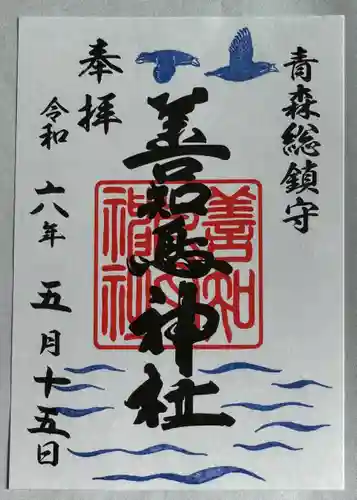 青森総鎮守
善知鳥神社
善知
神社
奉拝
令和六年五月十五日